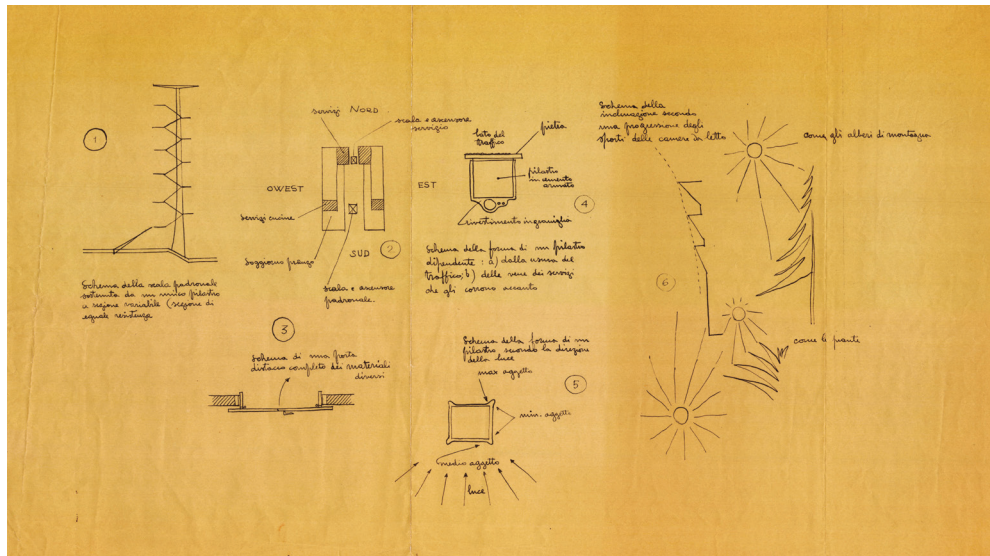 1
Schema della scala padronale
sostenuta da un unico pilastro
a sezione variabile (sezione di
eguale resistenza
servizi
NORD
scala e ascensore
servizio
OWEST
EST
servizi cucine
soggiorno pranzo
SUD
2
scala e ascensore
padronale.
3
Schema di una porta
distacco completo dei materiali
diversi
lato del
traffico
pietra
pilastro
in cemento
armato
4
rivestimento in graniglia
Schema della forma di un pilastro
dipendente : a) dalla usura del
traffico; b) delle vene dei servizi
che gli corrono accanto
Schema della forma di un
pilastro secondo la direzione
della luce
max aggetto
5
min. aggetto
medio aggetto
luce
Schema della
inclinazione secondo
una progressione degli
sporti delle camere in letto
come gli alberi di montagna
6
come le piante